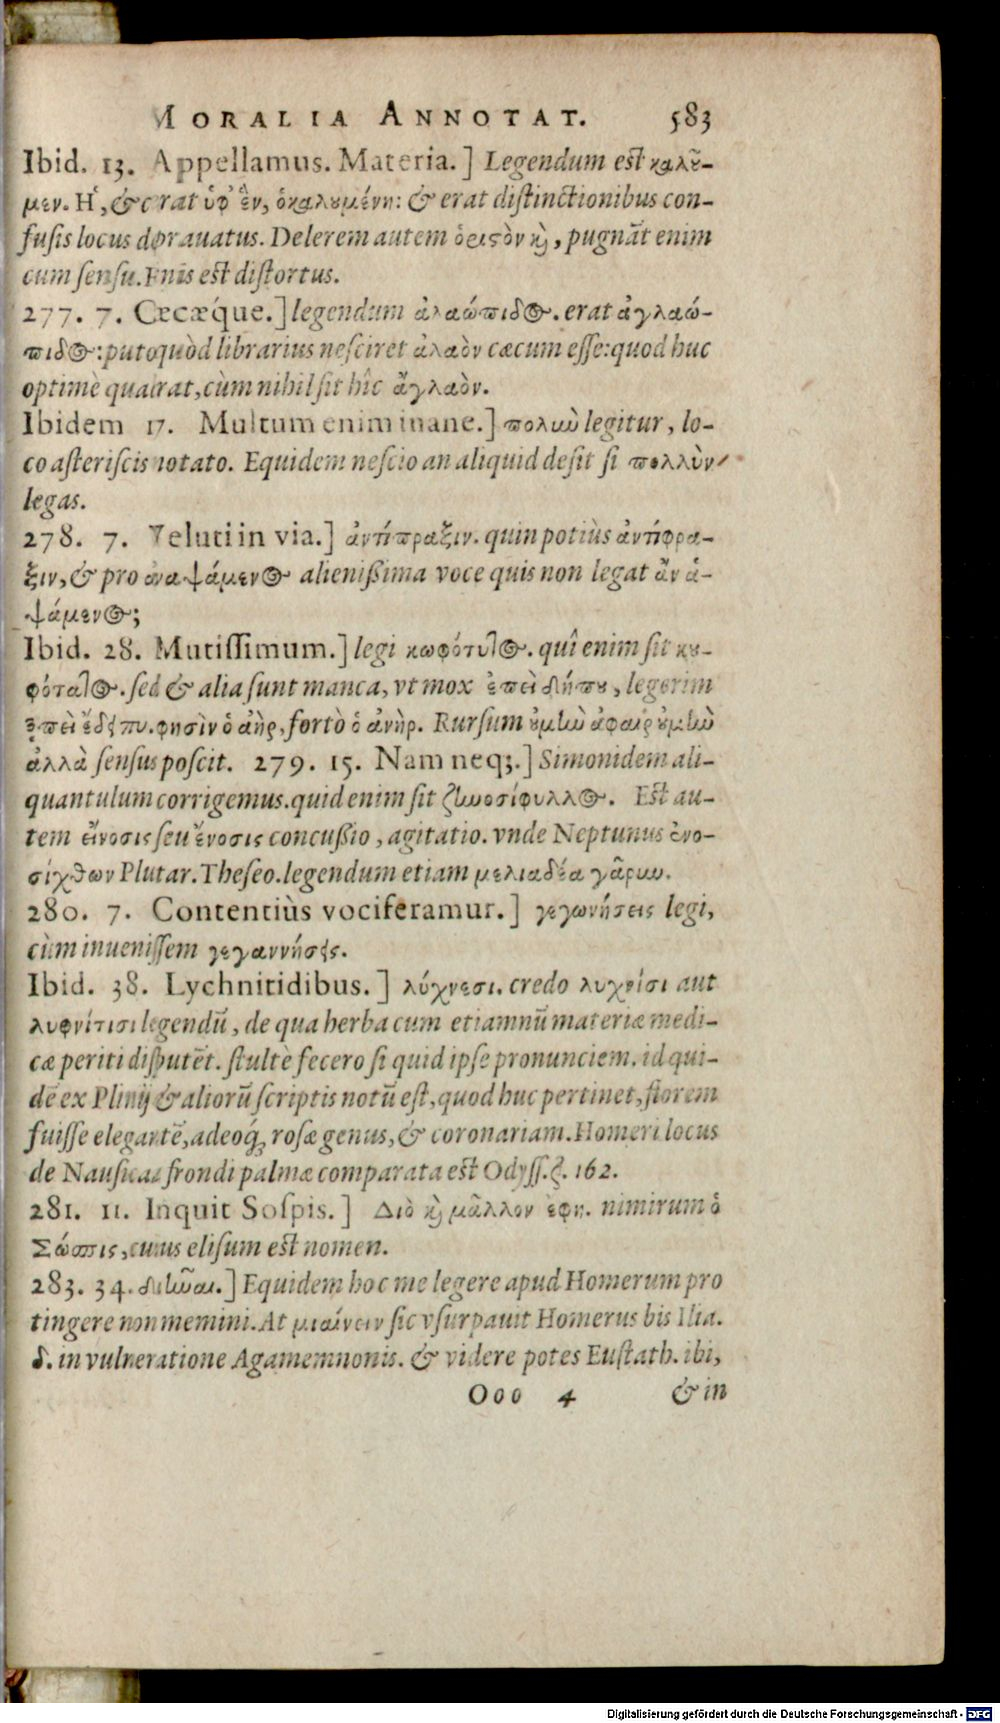 MORALIA ANNOTAT. 583
Ibid. 13. Appellamus. Materia.] Legendum est καλοῦ-
μεν. Η, & erat ὑφ' ἓν, ὁ καλουμένη: & erat distinctionibus con-
fusis locus deprauatus. Delerem autem ὁριστὸν καὶ, pugnāt enim
cum sensu. Finis est distortus.
277. 7. Cæcǽque.] legendum ἀλαώπιδος. erat ἀγλαώ-
πιδος: puto quòd librarius nesciret ἀλαὸν cæcum esse: quod huc
optimè quadrat, cùm nihil sit hîc ἄγλαὸν.
Ibidem 17. Multum enim inane.] πολυὺ legitur, lo-
co asteriscis notato. Equidem nescio an aliquid desit si πολλὺν
legas.
278. 7. Veluti in via.] ἀντίπραξιν. quin potiùs ἀντίφρα-
ξιν, & pro ἀναψάμενος alienißima voce quis non legat ἂν ἁ-
ψάμενος;
Ibid. 28. Mutissimum.] legi κωφότατος. quî enim sit κου-
φότατος. sed & alia sunt manca, vt mox ἐπεὶ δήπου, legerim
ἐπεὶ ἔδει που. φησὶν ὁ ἀὴρ, fortò ὁ ἀνὴρ. Rursum
ἀλλὰ sensus poscit. 279. 15. Nam neq;.] Simonidem ali-
quantulum corrigemus. quid enim sit ζωνοσίφυλλος. Est au-
tem εἴνοσις seu ἔνοσις concußio, agitatio. vnde Neptunus ἐνο-
σίχθων Plutar. Theseo. legendum etiam μελιαδέα γᾶρυν.
280. 7. Contentiùs vociferamur.] γεγωνήσεις legi,
cùm inuenissem γεγαννήσεις.
Ibid. 38. Lychnitidibus.] λύχνεσι. credo λυχνίσι aut
λυφνίτισι legendū, de qua herba cum etiamnū materiæ medi-
cæ periti disputēt. stultè fecero si quid ipse pronunciem. id qui-
dē ex Plinij & aliorū scriptis notū est, quod huc pertinet, florem
fuisse elegantē, adeoq́; rosæ genus, & coronariam. Homeri locus
de Nausicaa frondi palmæ comparata est Odyss. ζ. 162.
281. 11. Inquit Sospis.] Διὸ καὶ μᾶλλον ἔφη. nimirum ὁ
Σώσπις, cuius elisum est nomen.
283. 34. δευῶσαι.] Equidem hoc me legere apud Homerum pro
tingere non memini. At μιαίνειν sic vsurpauit Homerus bis Ilia.
δ. in vulneratione Agamemnonis. & videre potes Eustath. ibi,
Ooo 4 & in
Digitalisierung gefördert durch die Deutsche Forschungsgemeinschaft - DFG